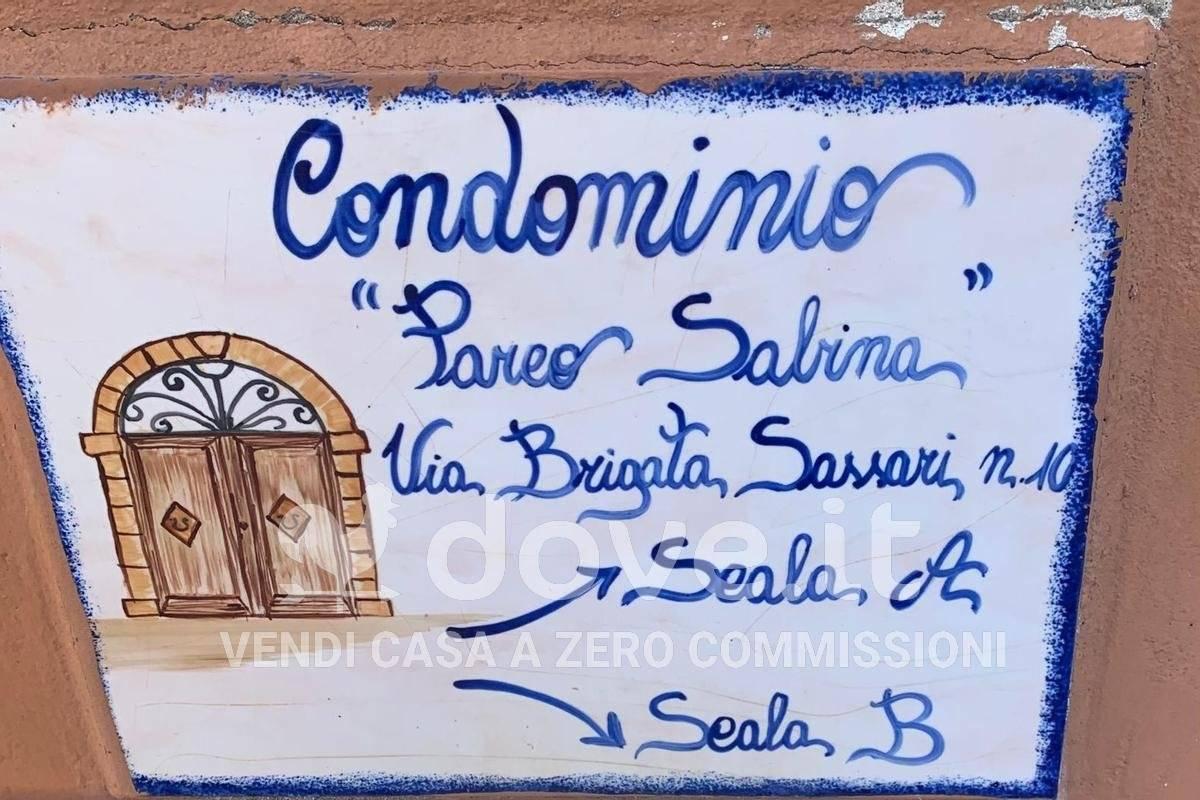 Condominio
"Parco Sabina"
Via Brigata Sassari n.10
dove.it
Scala A
VENDI CASA A ZERO COMMISSIONI
Scala B